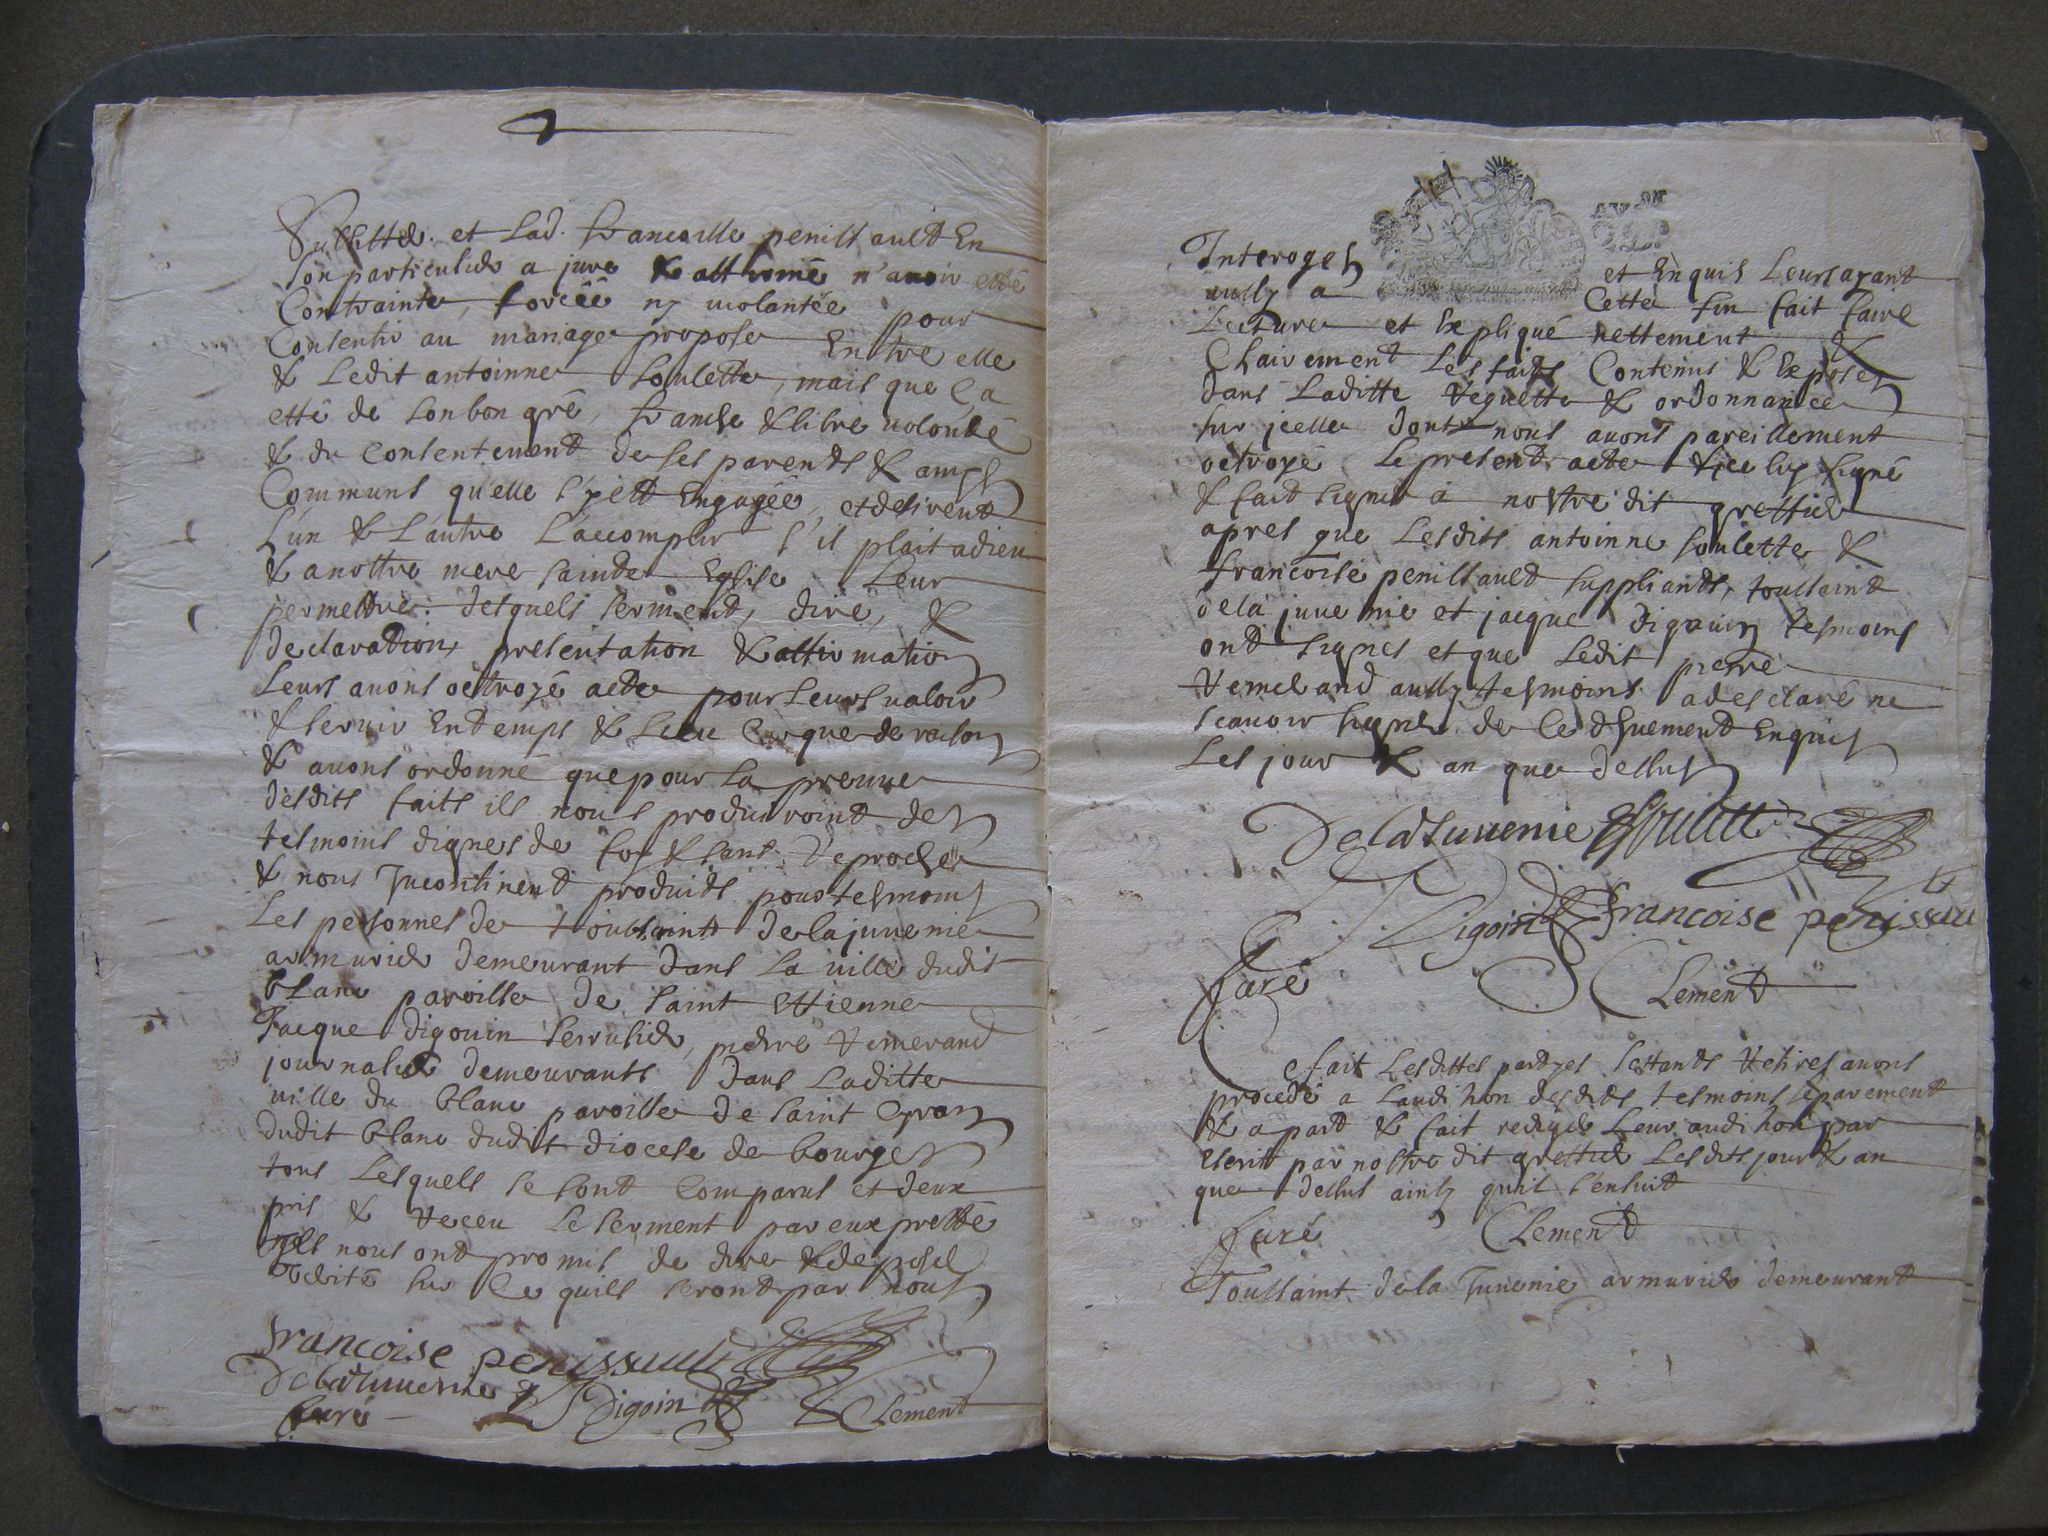 et Lad. francoisse penissault En
son particulier a juré & affirmé n'avoir esté
Contrainte, forcée ny violantée pour
Consentir au mariage proposé Entre elle
& Ledit antoinne soulette, mais que ça
etté de son bon gré, franche & libre volonté
& du Consentement de ses parents & amys
Communs qu'elle s'y est Engagée, et desirent
L'un & L'autre L'accomplir s'il plait a dieu
& a nostre mere sainte Eglise Leur
permettre. desquels serment, dire, &
declaration, presentation & affirmation
Leurs avons octroyé acte pour Leurs valoir
& servir En temps & Lieu Ce que de raison
& avons ordonné que pour La preuve
desdits faits ils nous produiroint des
tesmoins dignes de foy & sans reproche
& nous Incontinent produits pour tesmoins
Les personnes de toussaint delajuvenie
armurier demeurant dans La ville dudit
blanc paroisse de saint Ettienne
Jacque digouin serrusier, pierre Vemerand
journalier demeurants dans Laditte
ville du blanc paroisse de saint Cyran
dudit blanc dudit diocese de bourges
tous Lesquels se sont Comparus et deux
pris & receu Le serment par eux presté
ils nous ont promis de dire & deposer
verité sur Ce quils seront par nous
francoise penissault
Delajuvenie Digoin Clement
Juré
Interoges et Enquis Leurs ayant
aussy a Cette fin fait faire
Lecture et Expliqué nettement &
Clairement Les faits Contenus & Exposes
dans Laditte requette & ordonnance
sur jcelle dont nous avons pareillement
octroyé Le present acte & jceluy signé
& fait signer a nostre dit greffier
apres que Lesdits antoinne soulette &
francoise penissault suppliants, toussaint
dela juvenie et jacque digouin tesmoins
ont signes et que Ledit pierre
Vemerand aussy tesmoins a desclaré ne
scavoir signer de Ce dhuement Enquis
Les jour & an que dessus
Delajuvenie Soulette
Digoin francoise penissau
Juré Clement
Ce fait Lesdittes partyes s'estants retires avons
procedé a Laudition desdits tesmoins separement
& a part & fait rediger Leur audition par
Escrit par nostre dit greffier Lesdits jour & an
que dessus ainsy quil s'ensuit
Juré Clement
Toussaint dela Juvenie armurier demeurant